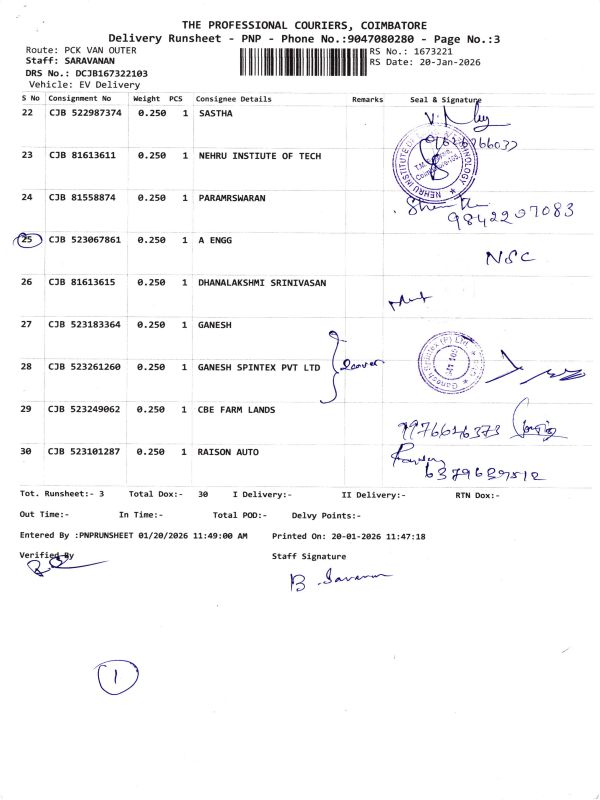 THE PROFESSIONAL COURIERS, COIMBATORE
Delivery Runsheet - PNP - Phone No.:9047080280 - Page No.:3
Route: PCK VAN OUTER
RS No.: 1673221
Staff: SARAVANAN
RS Date: 20-Jan-2026
DRS No.: DCJB167322103
Vehicle: EV Delivery
S No Consignment No Weight PCS Consignee Details Remarks Seal & Signature
22 CJB 522987374 0.250 1 SASTHA
23 CJB 81613611 0.250 1 NEHRU INSTIUTE OF TECH
NEHRU INSTITUTE OF TECHNOLOGY
24 CJB 81558874 0.250 1 PARAMRSWARAN
9842207083
25 CJB 523067861 0.250 1 A ENGG
NSC
26 CJB 81613615 0.250 1 DHANALAKSHMI SRINIVASAN
27 CJB 523183364 0.250 1 GANESH
28 CJB 523261260 0.250 1 GANESH SPINTEX PVT LTD
Ganesh Spintex (P) Ltd.
29 CJB 523249062 0.250 1 CBE FARM LANDS
30 CJB 523101287 0.250 1 RAISON AUTO
Tot. Runsheet:- 3 Total Dox:- 30 I Delivery:- II Delivery:- RTN Dox:-
Out Time:- In Time:- Total POD:- Delvy Points:-
Entered By :PNPRUNSHEET 01/20/2026 11:49:00 AM Printed On: 20-01-2026 11:47:18
Verified By Staff Signature
1